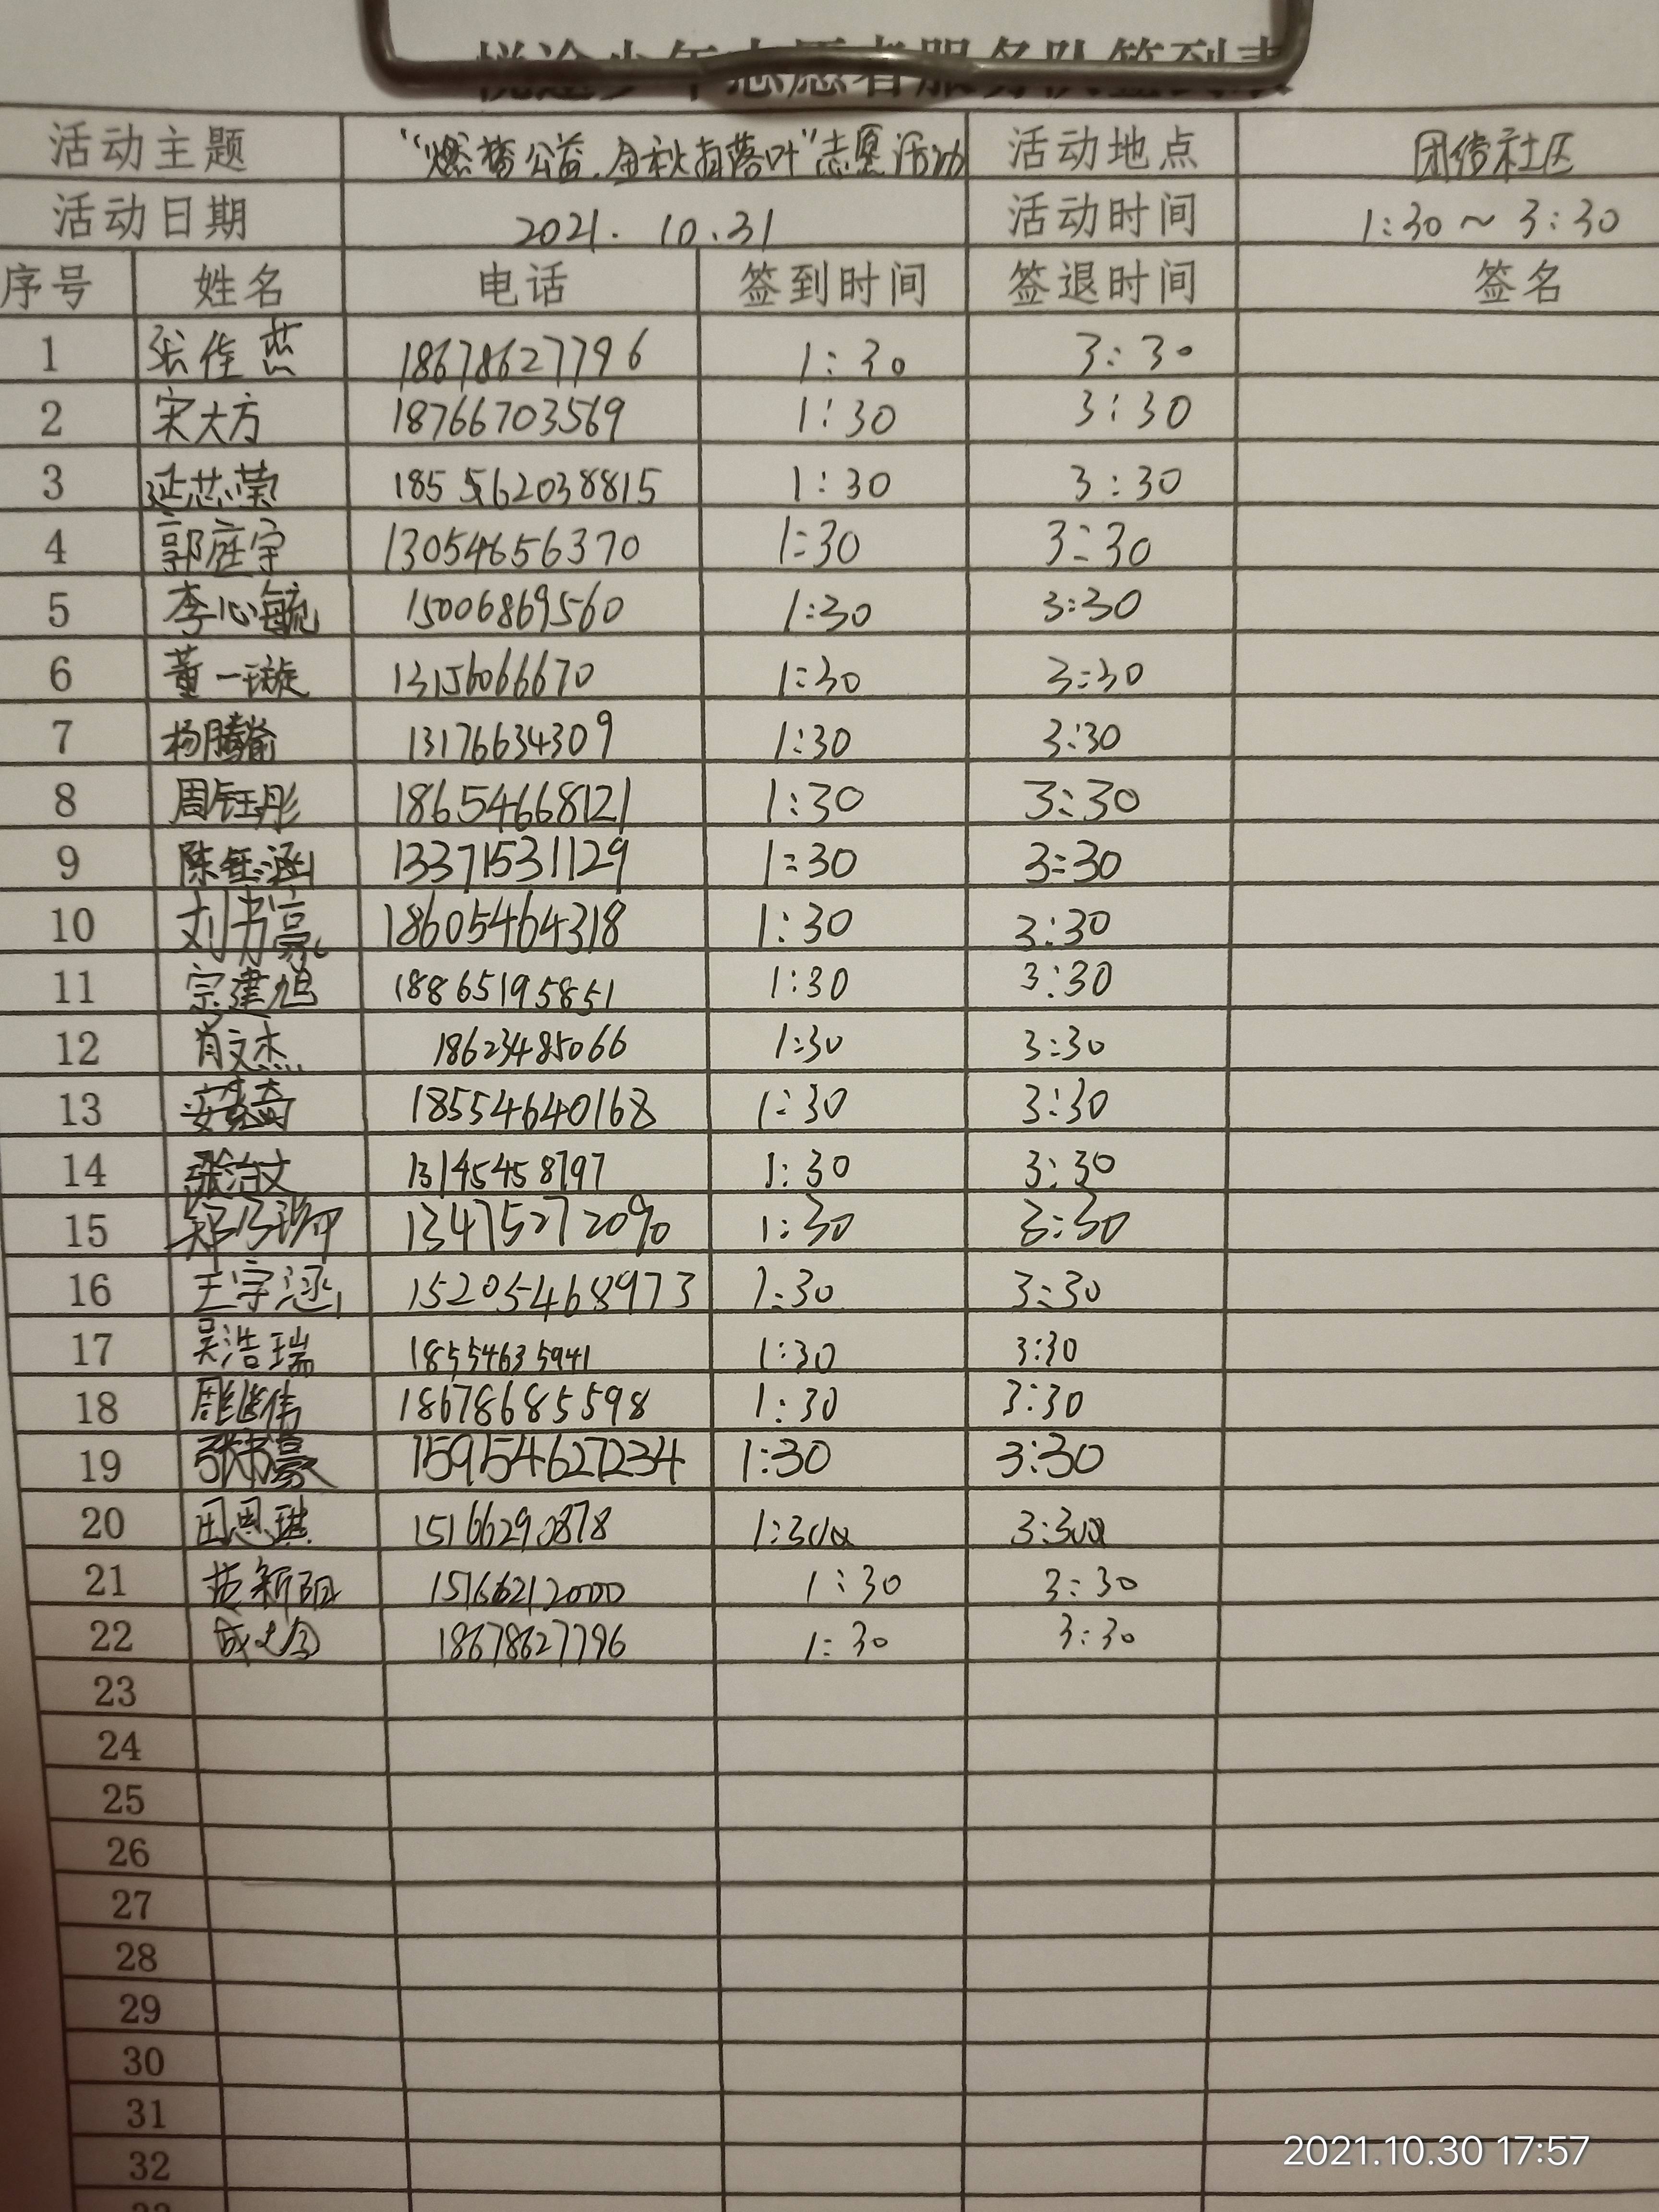 志愿者服务队签到表
活动主题 "燃梦公益.金秋扫落叶"志愿活动 活动地点 团结社区
活动日期 2021. 10.31 活动时间 1:30～3:30
序号 姓名 电话 签到时间 签退时间 签名
1 张佳 18678627796 1:30 3:30
2 宋大方 18766703569 1:30 3:30
3 延芯荣 185 562038815 1:30 3:30
4 郭庭宇 13054656370 1:30 3:30
5 李心毓 15006869560 1:30 3:30
6 董一璇 13156066670 1:30 3:30
7 杨腾 13176634309 1:30 3:30
8 周钰彤 18654668121 1:30 3:30
9 陈钰涵 13371531129 1:30 3:30
10 刘书豪 18605464318 1:30 3:30
11 宗建旭 18865195851 1:30 3:30
12 肖文杰 18623485066 1:30 3:30
13 18554640168 1:30 3:30
14 张治文 13145458797 1:30 3:30
15 郑乃珅 13475272090 1:30 3:30
16 王宇涵 15205468973 1:30 3:30
17 吴浩瑞 18554635941 1:30 3:30
18 18678685598 1:30 3:30
19 张书豪 159154627234 1:30 3:30
20 田恩琪 15166290878 1:30 3:30
21 范新阳 15166212000 1:30 3:30
22 18678627796 1:30 3:30
23
24
25
26
27
28
29
30
31
32
2021.10.30 17:57